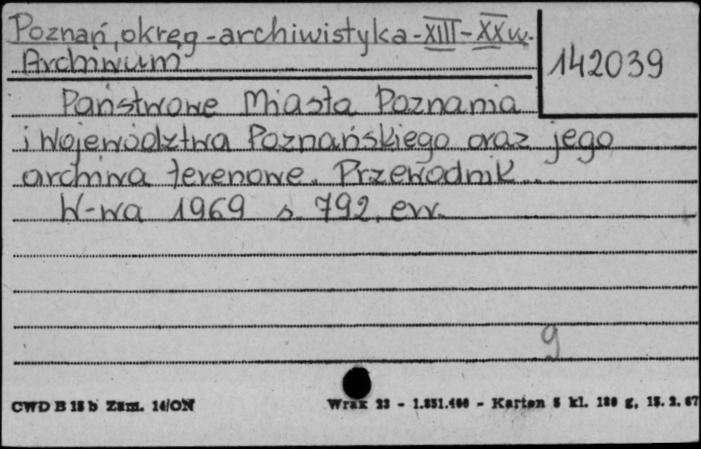 Poznań, okręg - archiwistyka - XIII - XX w.
Archiwum
142039
Państwowe Miasta Poznania
i Województwa Poznańskiego oraz jego
archiwa terenowe. Przewodnik.
W-wa 1969 s. 792, err.
9
CWD B 15 b Zam. 14/ON
Wrak 23 - 1.851.400 - Karton 5 kl. 180 g, 15. 2. 67